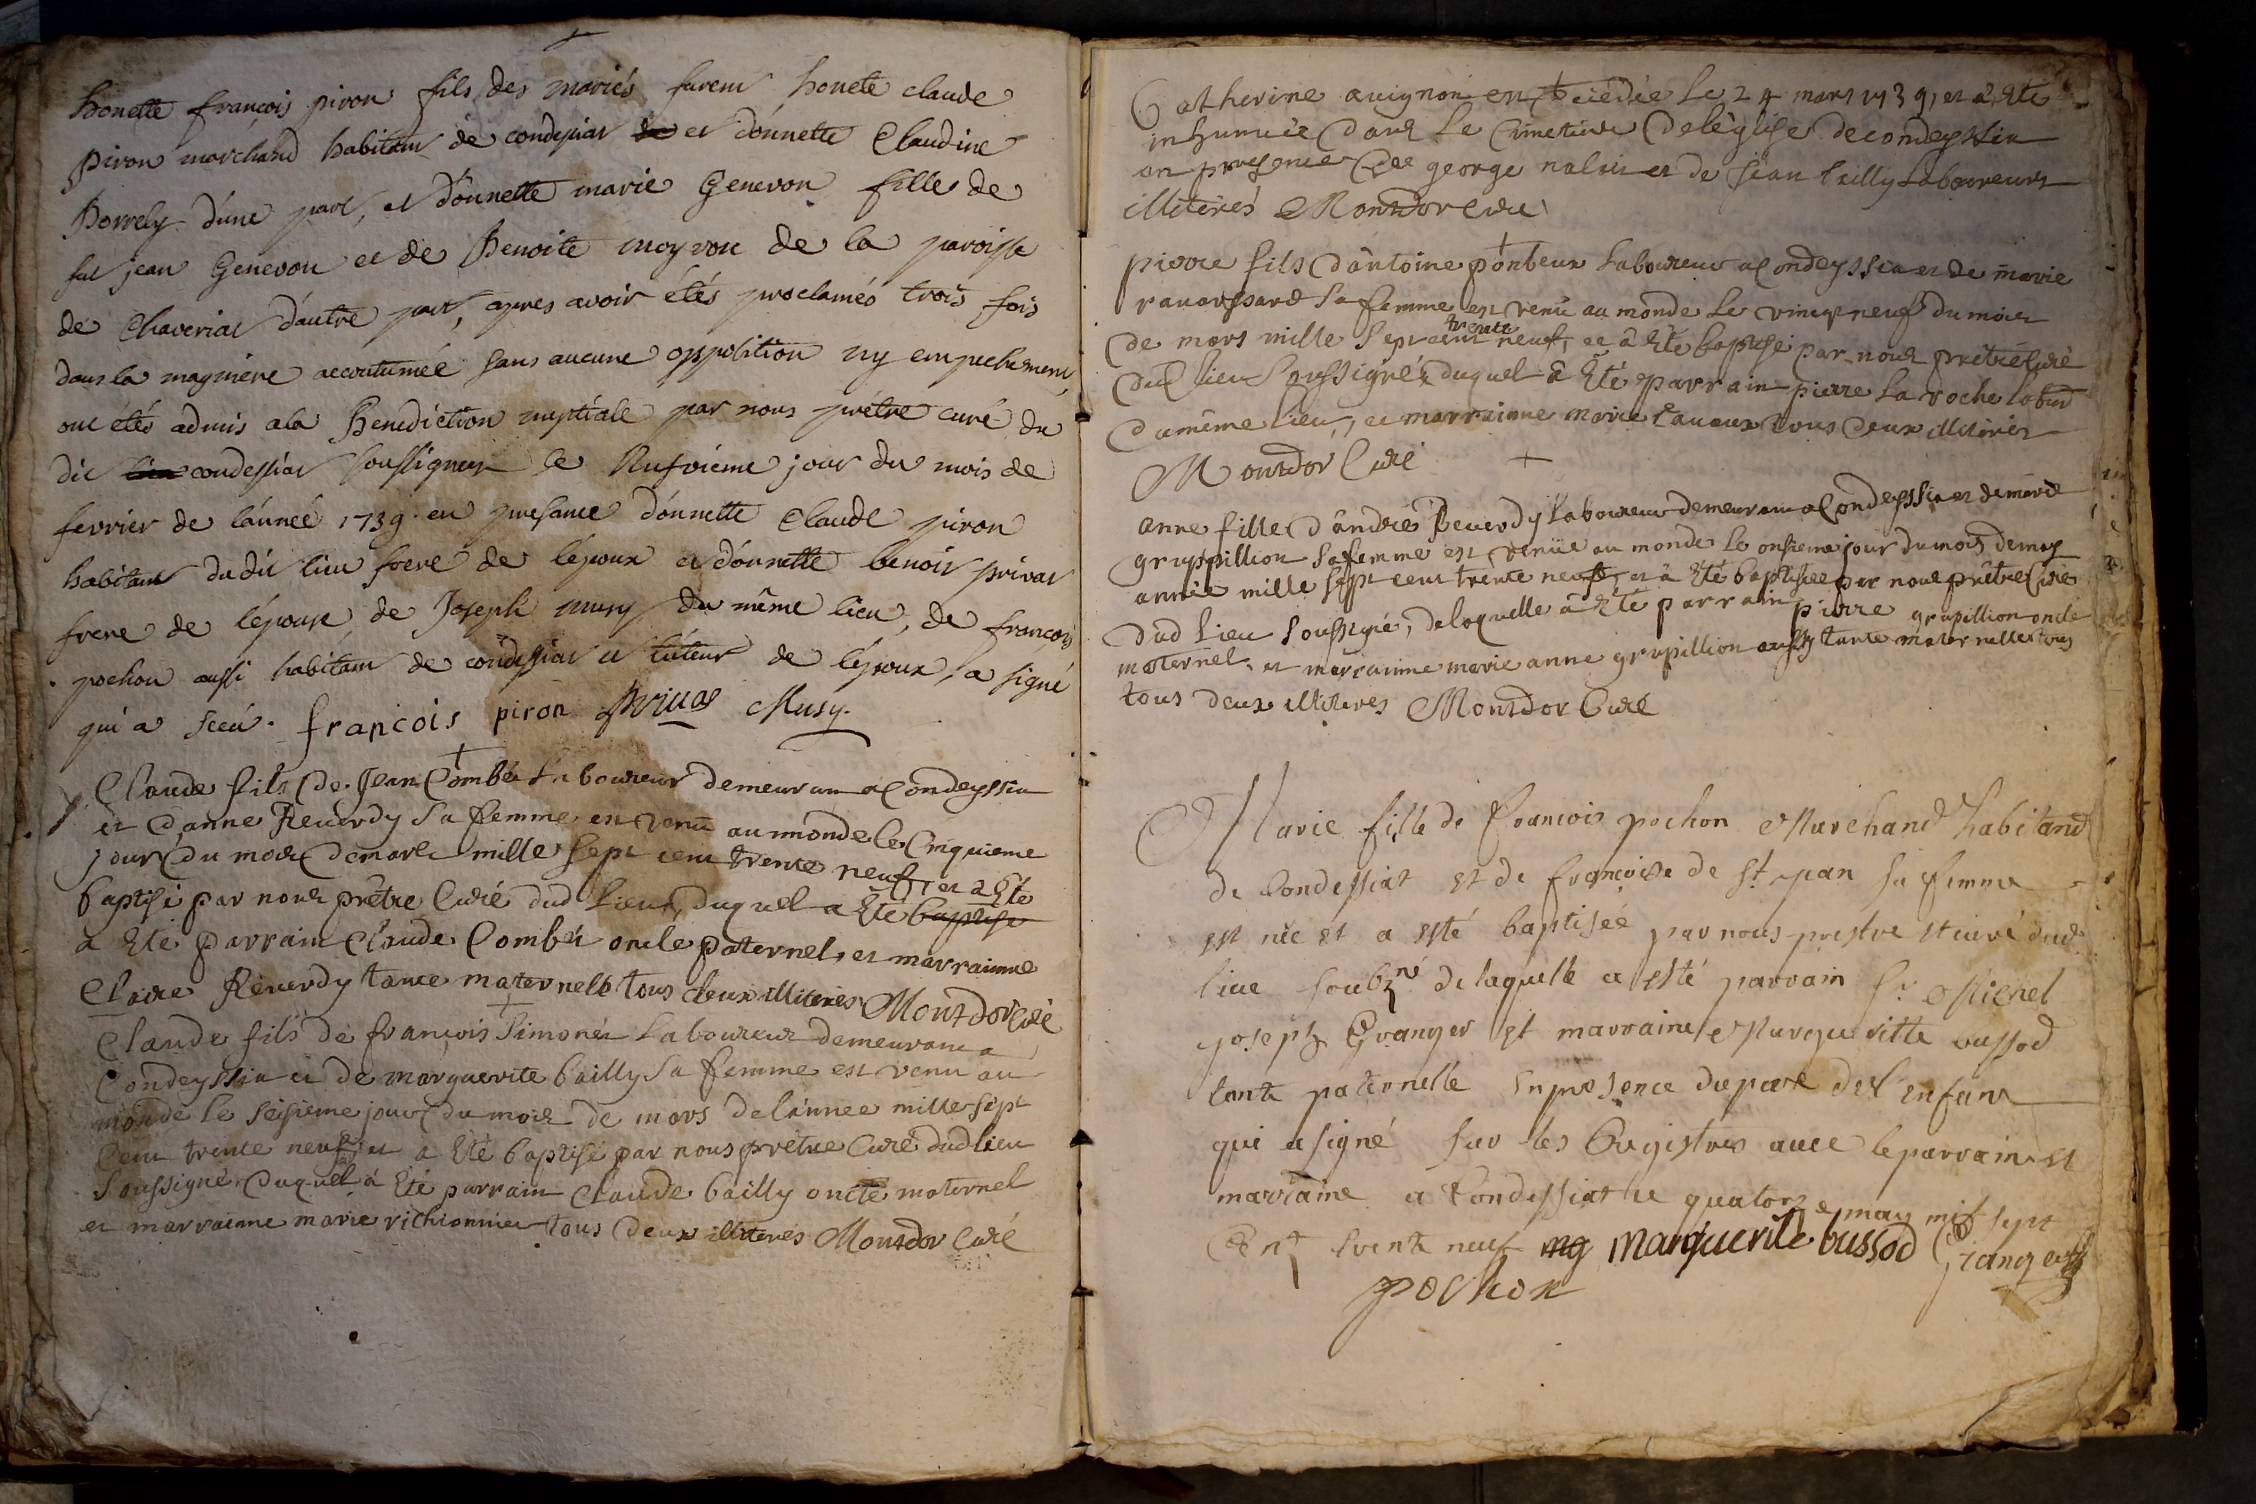 honette francois piron fils des mariés furent honete claude
piron marchand habitant de condessiat et d'onnette Claudine
Borrely d'une part, et d'onnette marie Genevon fille de
fut jean Genevon et de Benoite moyron de la paroisse
de Chaveriat d'autre part, apres avoir étés proclamés trois fois
dans la magniere accoutumée sans aucune opposition ny empechement
ont étés admis a la Benediction nuptiale par nous prêtre curé du
dit condessiat soussigner le jour du mois de
fevrier de l'année 1739 en presance d'onnette Claude piron
habitant du dit lieu frere de l'époux et d'onnette benoit privat
frere de l'épouse de Joseph musy du même lieu, de francois
pochon aussi habitant de condessiat et tuteur de l'époux, a signé
qui a sceu. francois piron privas Musy.
Claude fils de Jean Combet Laboureur demeurant a Condeyssia
et d'anne Reverdy sa femme est venu au monde le Cinquieme
jour du mois de mars mille sept cent trente neuf, et a Eté
baptisé par nous prêtre Curé dud Lieu, duquel a Eté baptise
a Eté parrain Claude Combet oncle paternel, et marrainne
Claire Reverdy tante maternelle tous deux illiterés Montdor Curé
Claude fils de francois Simonet Laboureur demeurant a
Condeyssia et de marguerite bailly sa femme est venu au
monde le seisieme jour du mois de mars de l'annee mille sept
Cent trente neuf, et a Eté baptisé par nous prêtre Curé dud lieu
soussigné duquel a Eté parrain Claude bailly oncle maternel
et marrainne marie tous deux illiterés Montdor Curé
Catherine avignon est decedée le 24 mars 1739, et a Eté
inhumée dans le Cimetiere de l'église de condeyssia
en presence de george nalui et de jean bailly Laboureurs
illiterés Montdor Curé
pierre fils d'antoine ponbeux Laboureur a Condeyssia et de marie
sa femme est venu au monde le vingt neuf du mois
de mars mille sept cent trente neuf, et a Eté baptisé par nous prêtre Curé
dud lieu soussigné, duquel a Eté parrain pierre La roche Labour
du même lieu, et marrainne marie tous deux illiterés
Montdor Curé
anne fille d'andré Reverdy Laboureur demeurant a Condeyssia et de marie
gruppillion sa femme est venüe au monde le onsieme jour du mois de may
année mille sept cent trente neuf, et a Eté baptisée par nous prêtre Curé
dud lieu soussigné, de laquelle a Eté parrain pierre grupillion oncle
maternel, et marrainne marie anne grupillion aussy tante maternelle tous
tous deux illiteres Montdor Curé
Marie fille de francois pochon Marchand habitand
de Condessiat et de francoise de st jean sa femme
est née et a esté baptisée par nous prestre et curé dud
lieu soubzné de laquelle a esté parrain sr Michel
joseph Granger et marraine Margueritte bussod
tante paternelle en presence du pere de l'enfant
qui a signé sur les Registres avec le parrain et
marraine a Condessiat le quatorze may mil sept
Cent trente neuf mg marguerite bussod Granger
pochon